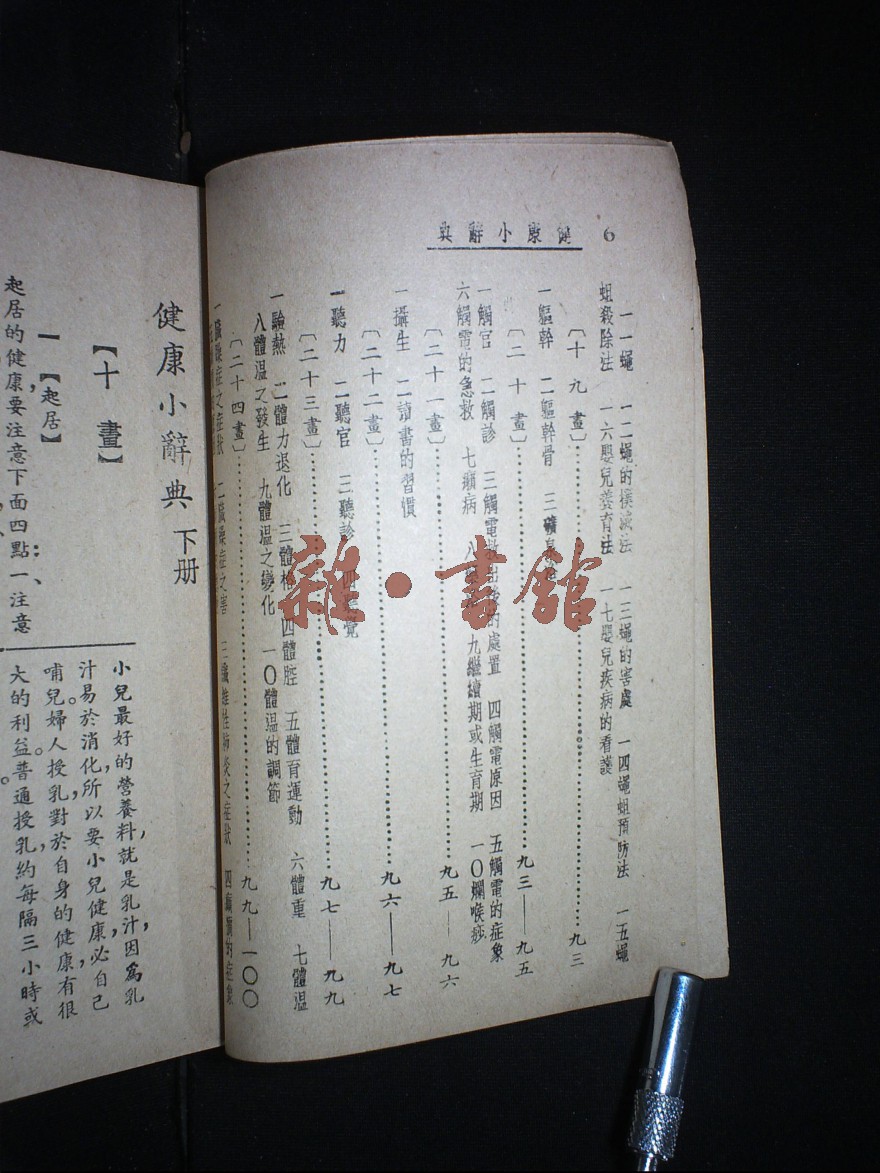 6 健康小辭典
一一蠅 一二蠅的撲滅法 一三蠅的害處 一四蠅蛆預防法 一五蠅
蛆殺除法 一六嬰兒養育法 一七嬰兒疾病的看護
〔十九畫〕……九三
一軀幹 二軀幹骨 三礦
〔二十畫〕……九三—九五
一觸官 二觸診 三觸電 的處置 四觸電原因 五觸電的症象
六觸電的急救 七癩病 八 九繼續期或生育期 一〇爛喉痧
〔二十一畫〕……九五—九六
一攝生 二讀書的習慣
〔二十二畫〕……九六—九七
一聽力 二聽官 三聽診 四 覺
〔二十三畫〕……九七—九九
一驗熱 二體力退化 三體格 四體腔 五體育運動 六體重 七體溫
八體溫之發生 九體溫之變化 一〇體溫的調節
〔二十四畫〕……九九—一〇〇
一臟躁症之症狀 二臟躁症之害 三纖維性肺炎之症狀 四 的症象
健康小辭典 下册
【十畫】
一【起居】
起居的健康,要注意下面四點:一、注意
小兒最好的營養料,就是乳汁,因爲乳
汁易於消化,所以要小兒健康,必自己
哺兒。婦人授乳,對於自身的健康,有很
大的利益。普通授乳約每隔三小時或
雜·書館